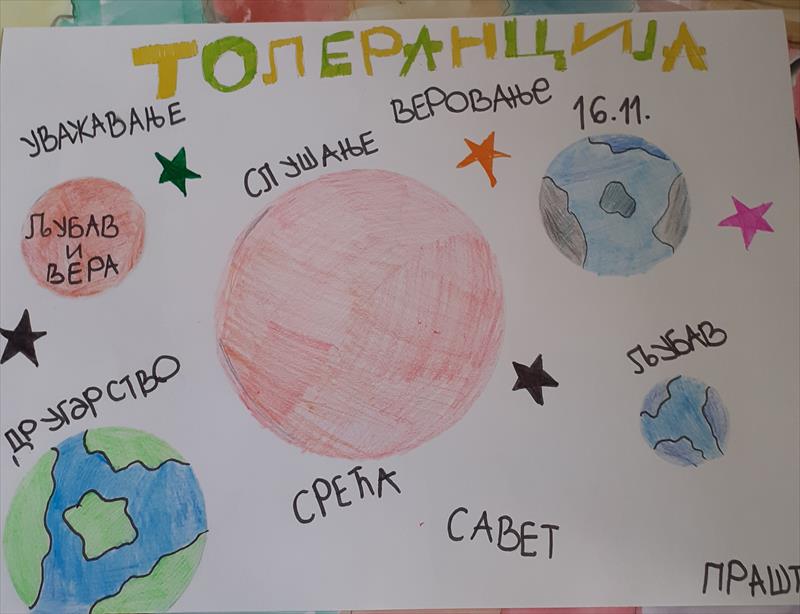 ТОЛЕРАНЦИЈА
УВАЖАВАЊЕ
СЛУШАЊЕ
ВЕРОВАЊЕ
16.11.
ЉУБАВ
И
ВЕРА
ЉУБАВ
ДРУГАРСТВО
СРЕЋА
САВЕТ
ПРАШТ